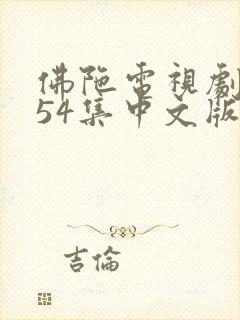 佛陀電視劇
54集中文版
吉倫